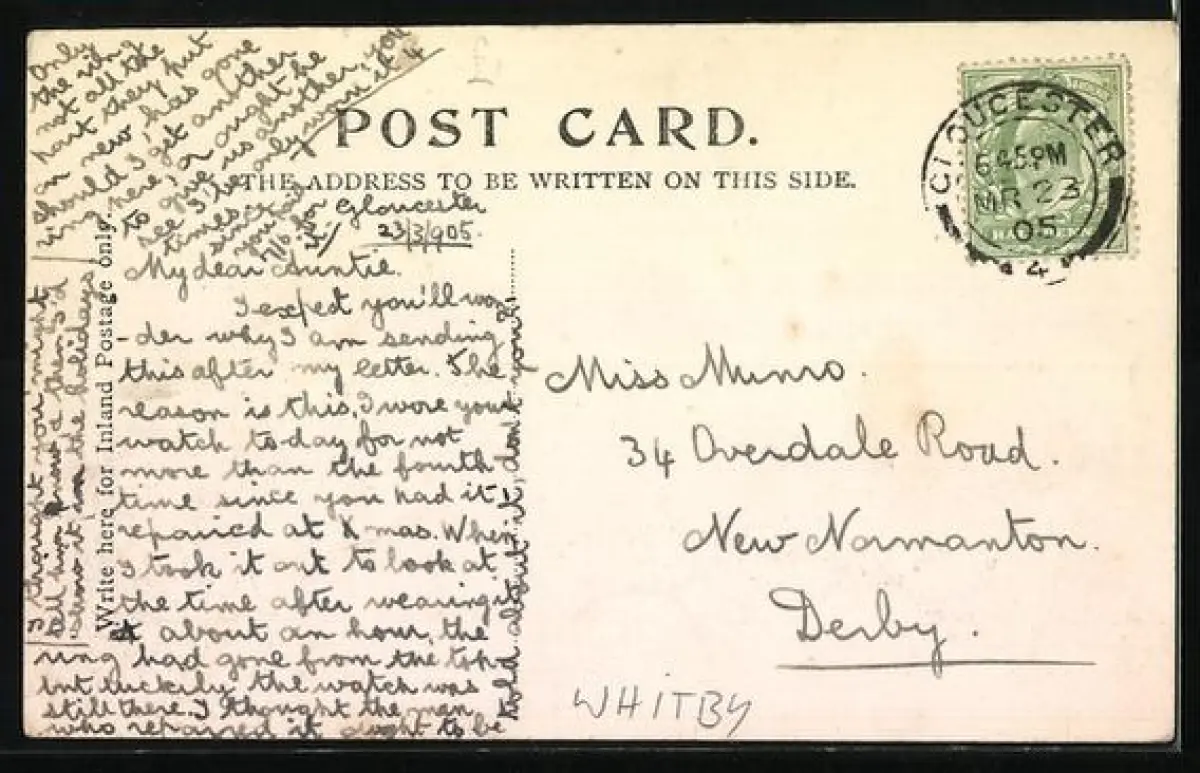 POST CARD.
THE ADDRESS TO BE WRITTEN ON THIS SIDE.
Write here for Inland Postage only.
GLOUCESTER
6 45 PM
MR 23
05
Gloucester
23/3/905.
My dear Auntie.
I expect you'll won
-der why I am sending
this after my letter. The
reason is this, I wore your
watch to day for not
more than the fourth
time since you had it
repaired at Xmas. When
I took it out to look at
the time after wearing
it about an hour, the
ring had gone from the top
but luckily the watch was
still there. I thought the man
who repaired it ought to be
told about it, don't you?
I thought you might
tell him and then I'd
show it in the holidays
Only
the ring
not all the
part they put
on new, has gone
should I get another
ring here, or ought he
to give us another, you
see I've only worn it 4
times since
you paid
7/6 for
it/
Miss Munro.
34 Overdale Road.
New Normanton.
Derby.
WHITBY